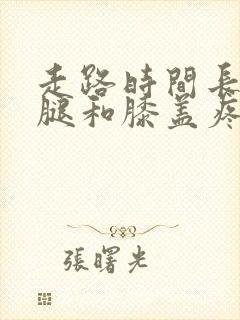 走路時間長
腿和膝盖疼
張曙光